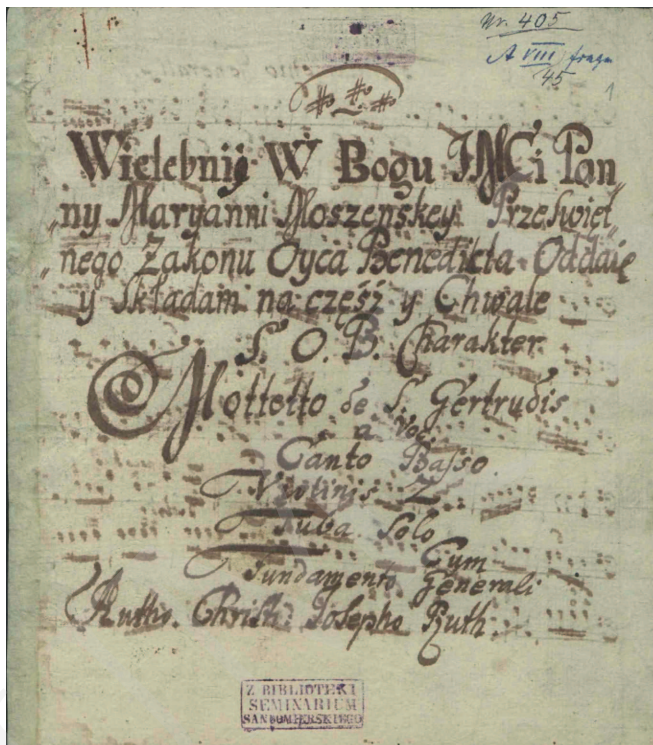 Nr. 405
A VIII fragm
45
1
Wielebnij W Bogu JMCi Pan„
„ny Maryanni Moszenskey Prześwięt„
„nego Zakonu Oyca Benedicta Oddaię
y Składam na część y Chwałe
S. O. B. Charakter
Mottetto de S. Gertrudis
a Voc.
Canto Basso
Violinis 2
Tuba Solo
Cum
Fundamento Generali
Autho. Christ: Josepho Ruth.
Z BIBLIOTEKI
SEMINARIUM
SANDOMIERSKIEGO